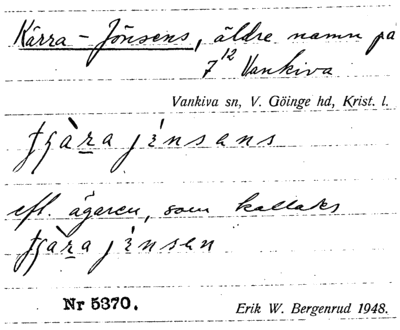 Kärra-Jönsens, äldre namn på
7¹² Vankiva
Vankiva sn, V. Göinge hd, Krist. l.
jìnsans
eft. ägaren, som kallats
jìnsan
Nr 5370. Erik W. Bergenrud 1948.